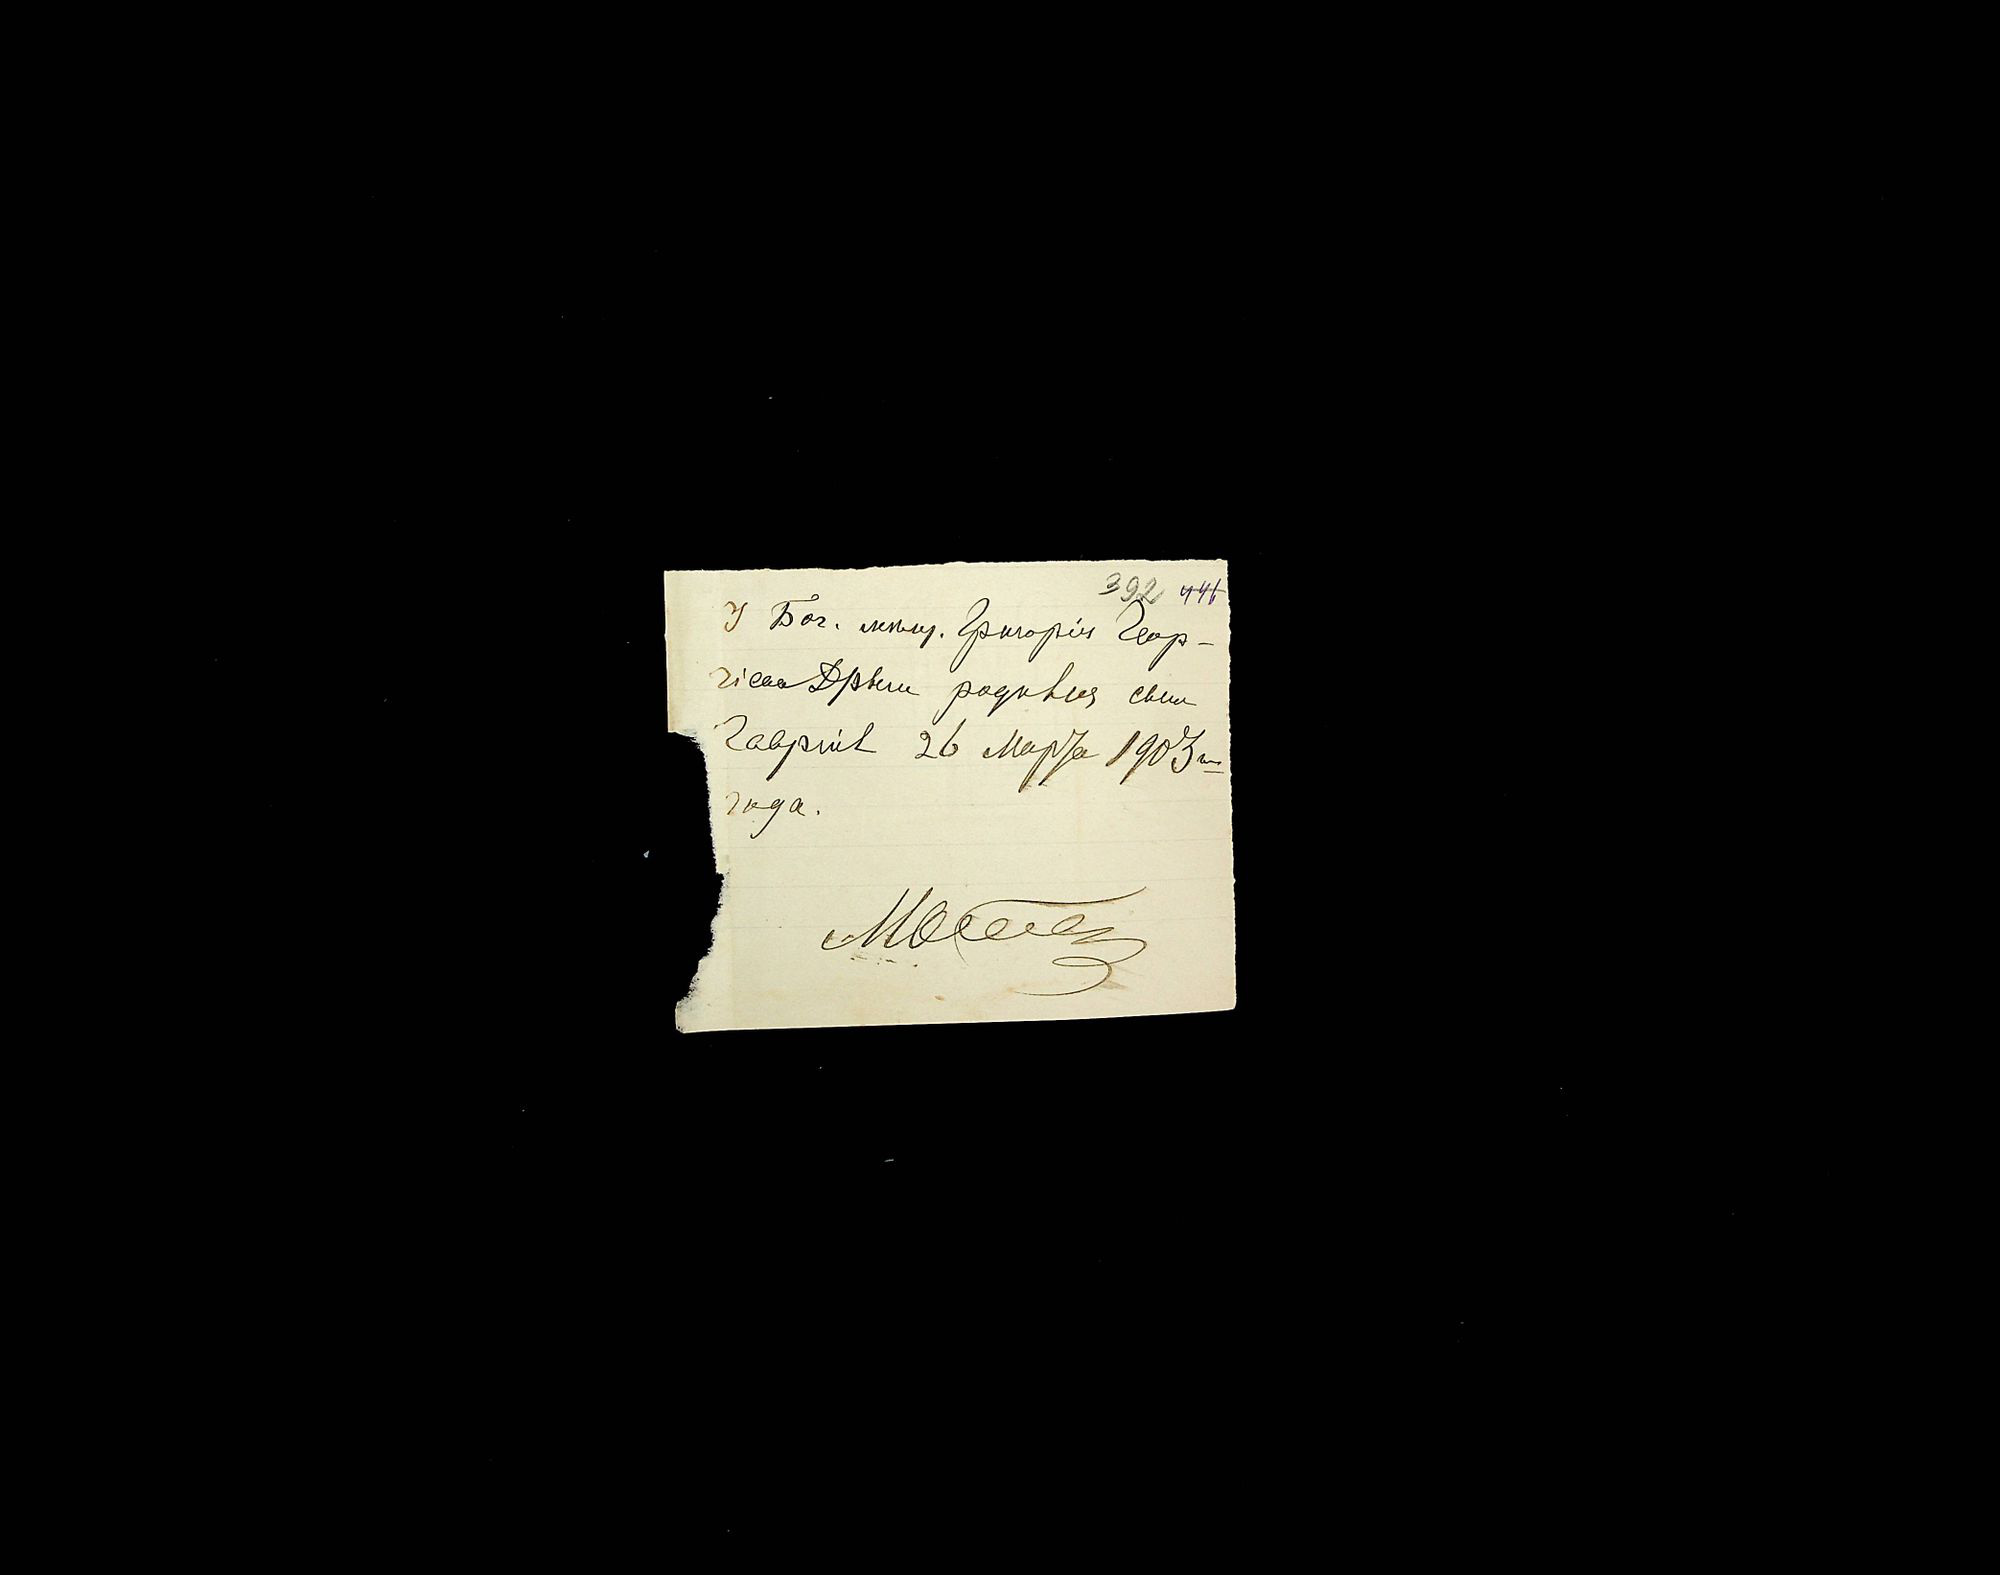 392 446
У Бог. мѣщ. Григорія Геор-
гіева родился сынъ
Гавріилъ 26 Марта 1903 го
года.